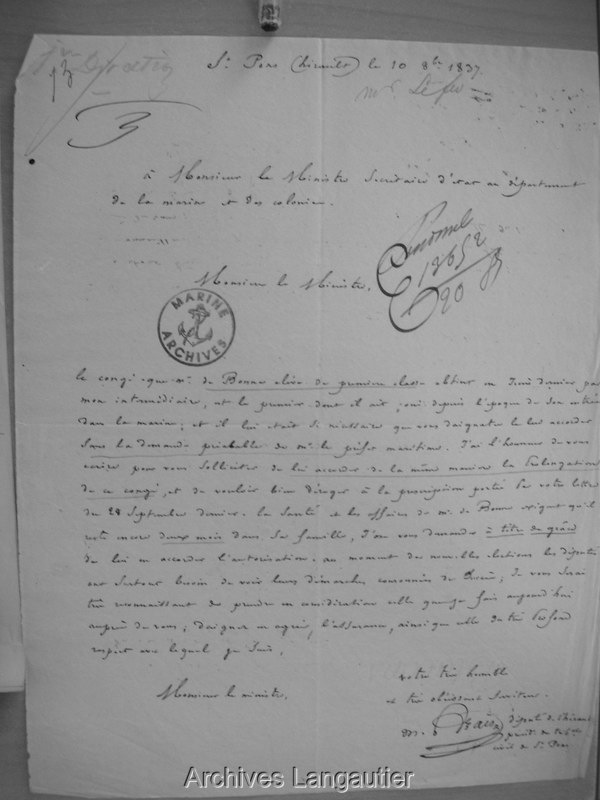 St Pons (hérault) le 10 8bre 1837.
à Monsieur le Ministre Secrétaire d'état au département
de la marine et des colonies.
Personnel
12652
20
Monsieur le Ministre,
MARINE
ARCHIVES
le congé que mr de Bonne élève de première classe obtint en Juin dernier par
mon intermédiaire, est le premier dont il ait joui depuis l'époque de son entrée
dans la marine; et il lui était si nécessaire que vous daignates le lui accorder
sans la demande préalable de mr le préfet maritime. J'ai l'honneur de vous
écrire pour vous solliciter de lui accorder de la même manière la prolongation
de ce congé, et de vouloir bien déroger à la prescription portée par votre lettre
du 28 Septembre dernier. la santé et les affaires de mr de Bonne exigent qu'il
reste encore deux mois dans sa famille, j'ose vous demander à titre de grâce
de lui en accorder l'autorisation. au moment de nouvelles élections les députés
ont surtout besoin de voir leurs démarches couronnées de succès, je vous serai
très reconnaissant de prendre en considération celle que je fais aujourd'hui
auprès de vous; daignez en agréer l'assurance, ainsi que celle du très profond
respect avec lequel je suis,
Monsieur le ministre,
votre très humble
et très obéissant serviteur.
député de l'hérault
président du tribunal
civil de St Pons
Archives Langautier